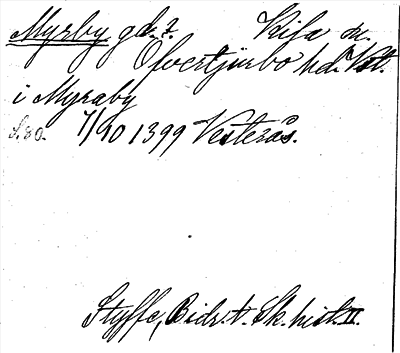 Myrby gd.? Kila sn.
Öfvertjurbo hd. Vstl.
i Myraby
S. 80. 7/10 1399 Vesterås.
Styffe, Bidr. t. Sk. hist. II.